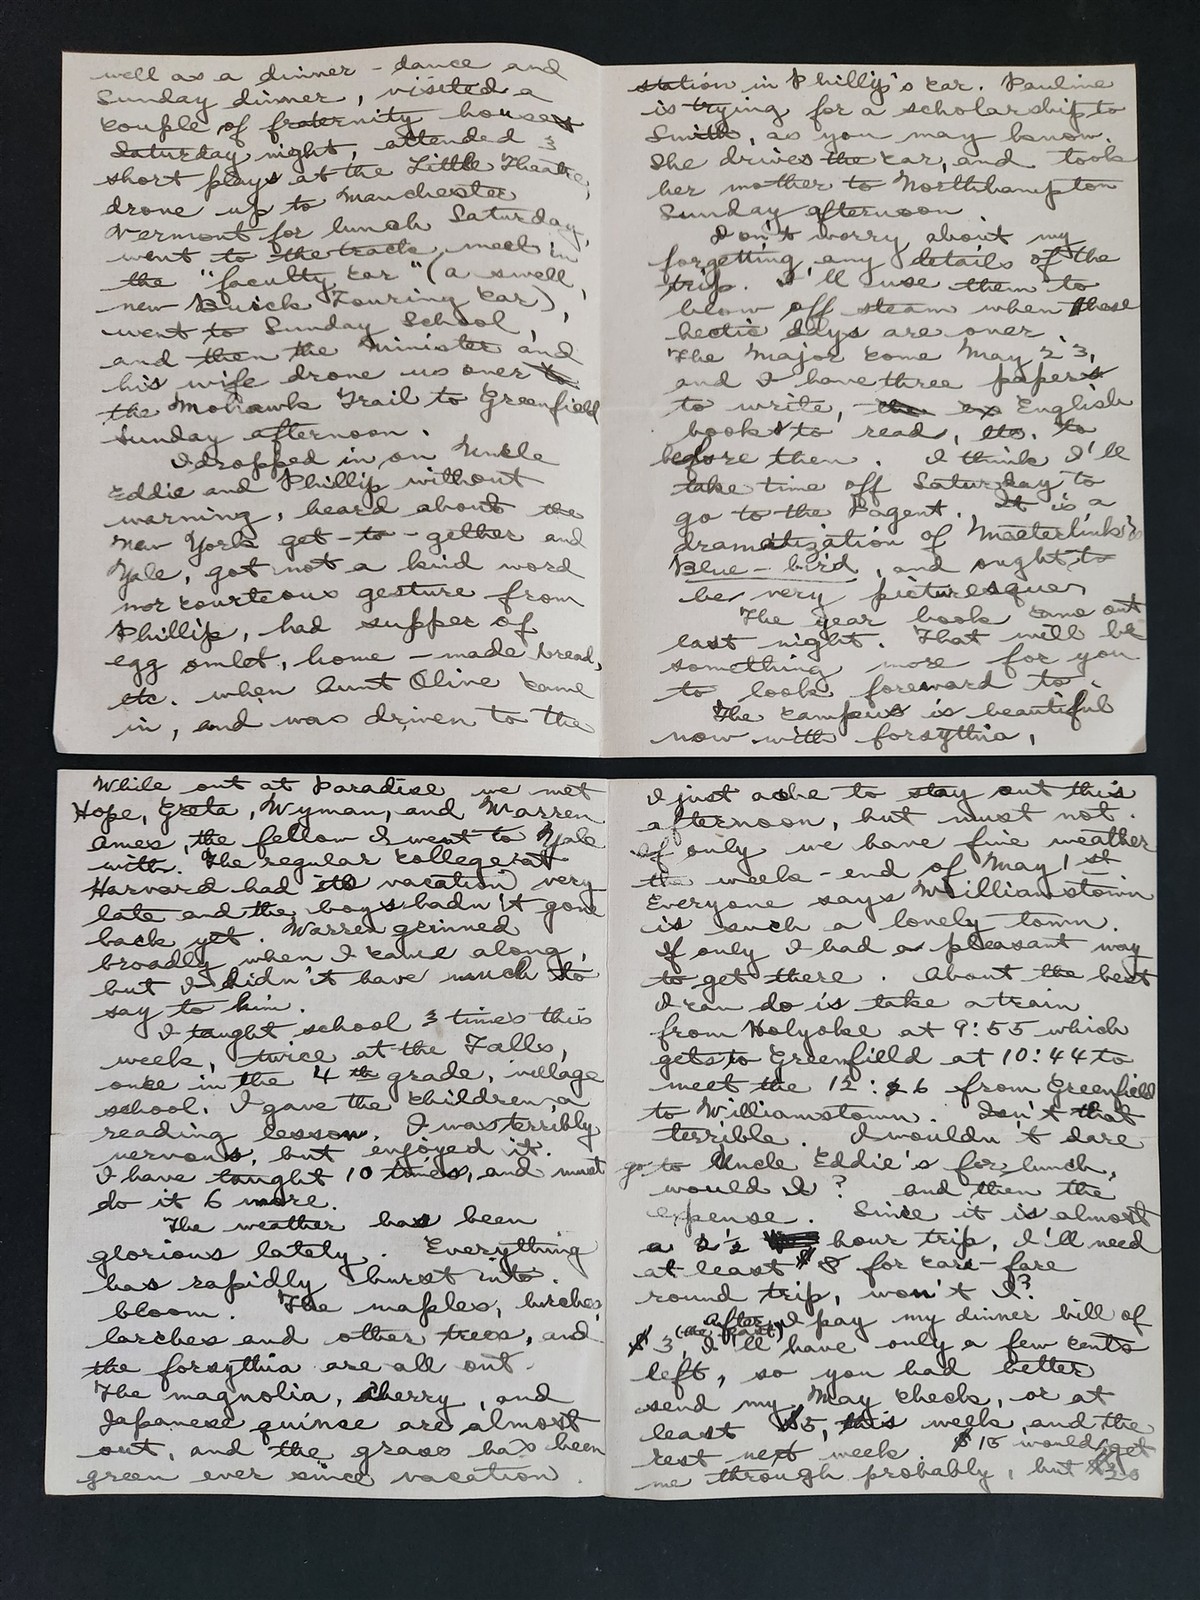 well as a dinner - dance and
Sunday dinner, visited a
couple of fraternity houses
Saturday night, attended 3
short plays at the Little Theatre,
drove up to Manchester
Vermont for lunch Saturday,
went to the track meet in
the "faculty car" (a swell,
new Buick Touring car),
went to Sunday School,
and then the Minister and
his wife drove us over to
the Mohawk Trail to Greenfield
Sunday afternoon.
I dropped in on Uncle
Eddie and Phillip without
warning, heard about the
New York get-to-gether and
Yale, got not a kind word
nor courteous gesture from
Phillip, had supper of
egg omlet, home-made bread,
etc. when Aunt Olive came
in, and was driven to the
station in Philly's car. Pauline
is trying for a scholarship to
Smith, as you may know.
She drives the car, and took
her mother to Northhampton
Sunday afternoon
Don't worry about my
forgetting any details of the
trip. I'll use them to
blow off steam when these
hectic days are over.
The Major come May 23,
and I have three papers
to write, the ex English
books to read, etc. to
before then. I think I'll
take time off Saturday to
go to the Pagent. It is a
dramatization of Maeterlink's
Blue-bird, and ought to
be very picturesque.
The year book came out
last night. That will be
something more for you
to look foreward to.
The campus is beautiful
now with forsythia,
While out at Paradise we met
Hope, Greta, Wyman, and Warren
Ames, the fellow I went to Yale
with. The regular college at
Harvard had its vacation very
late and the boys hadn't gone
back yet. Warren grinned
broadly when I came along,
but I didn't have much to
say to him.
I taught school 3 times this
week, twice at the Falls,
once in the 4th grade, village
school. I gave the children a
reading lesson. I was terribly
nervous, but enjoyed it.
I have taught 10 times, and must
do it 6 more.
The weather has been
glorious lately. Everything
has rapidly burst into
bloom. The maples, birches,
larches and other trees, and
the forsythia are all out.
The magnolia, cherry, and
Japanese quince are almost
out, and the grass has been
green ever since vacation.
I just ache to stay out this
afternoon, but must not.
If only we have fine weather
the week-end of May 1st
Everyone says Williamstown
is such a lonely town.
If only I had a pleasant way
to get there. About the best
I can do is take a train
from Holyoke at 9:55 which
gets to Greenfield at 10:44 to
meet the 12:26 from Greenfield
to Williamstown. Isn't that
terrible. I wouldn't dare
go to Uncle Eddie's for lunch,
would I? and then the
expense. Since it is almost
a 2½ hour trip, I'll need
at least $8 for care-fare
round trip, won't I?
After I pay my dinner bill of
$3, I'll have only a few cents
left, so you had better
send my May check, or at
least $5, this week, and the
rest next week. $15 would get
me through probably, but